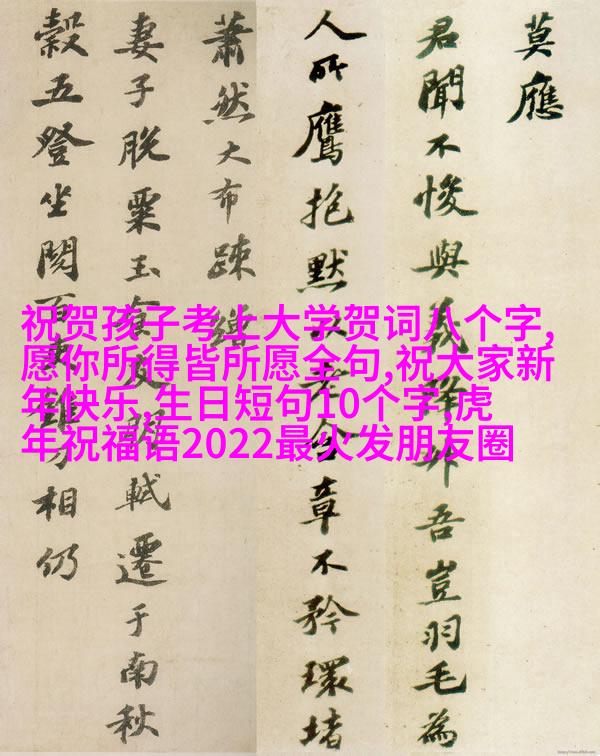 莫應
君聞不悛與義降升吾豈羽毛為
人所鷹抱默以老含章不矜環堵
蕭然大布疎繒
妻子脫粟玉食及軾遷于南秋
穀五登坐閱百吏錐刀相仍
祝贺孩子考上大学贺词八个字,
愿你所得皆所愿全句,祝大家新
年快乐,生日短句10个字,虎
年祝福语2022最火发朋友圈